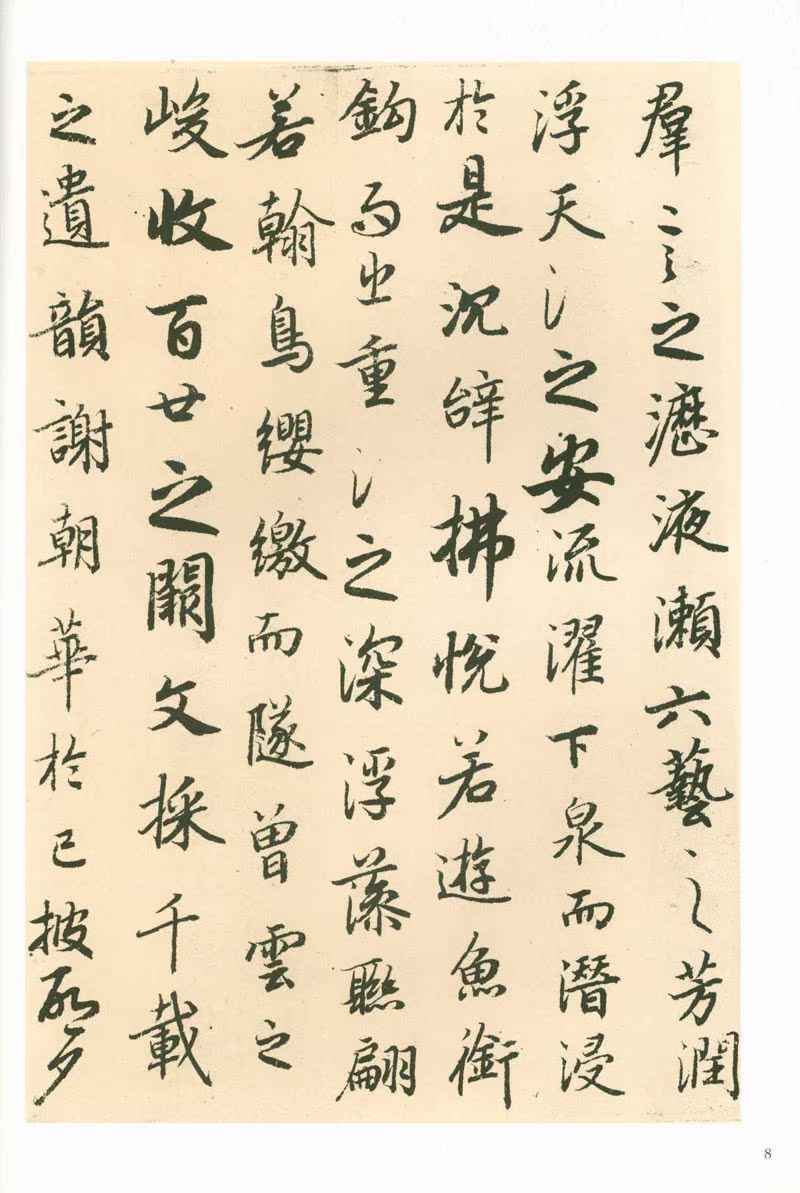 羣言之瀝液瀨六藝之芳潤
浮天氵之安流濯下泉而潛浸
於是沉辝拂悅若遊魚銜
鈎而出重氵之深浮藻聮翩
若翰鳥纓繳而隧曾雲之
峻收百廿之闕文採千載
之遺韻謝朝華於已披啓夕
8